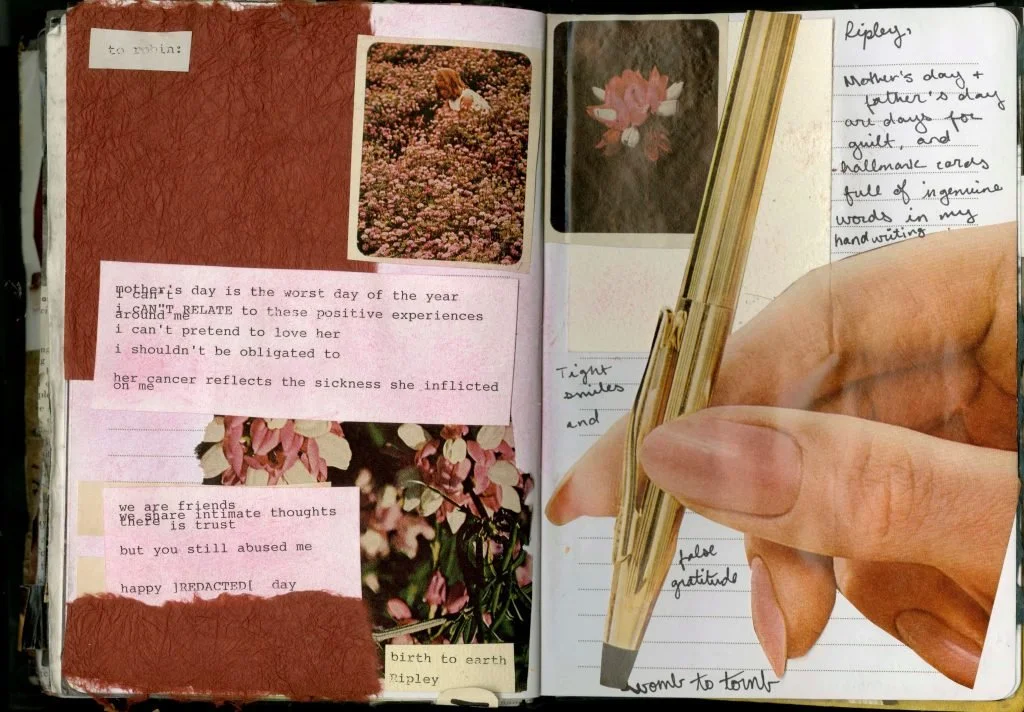 to robin:
mother's day is the worst day of the year
i can't
i CAN"T RELATE to these positive experiences
around me
i can't pretend to love her
i shouldn't be obligated to
her cancer reflects the sickness she inflicted
on me
we are friends
we share intimate thoughts
there is trust
but you still abused me
happy ]REDACTED[ day
birth to earth
Ripley
Ripley,
Mother's day +
father's day
are days for
guilt, and
hallmark cards
full of ingenuine
words in my
handwriting
Tight
smiles
and
false
gratitude
womb to tomb